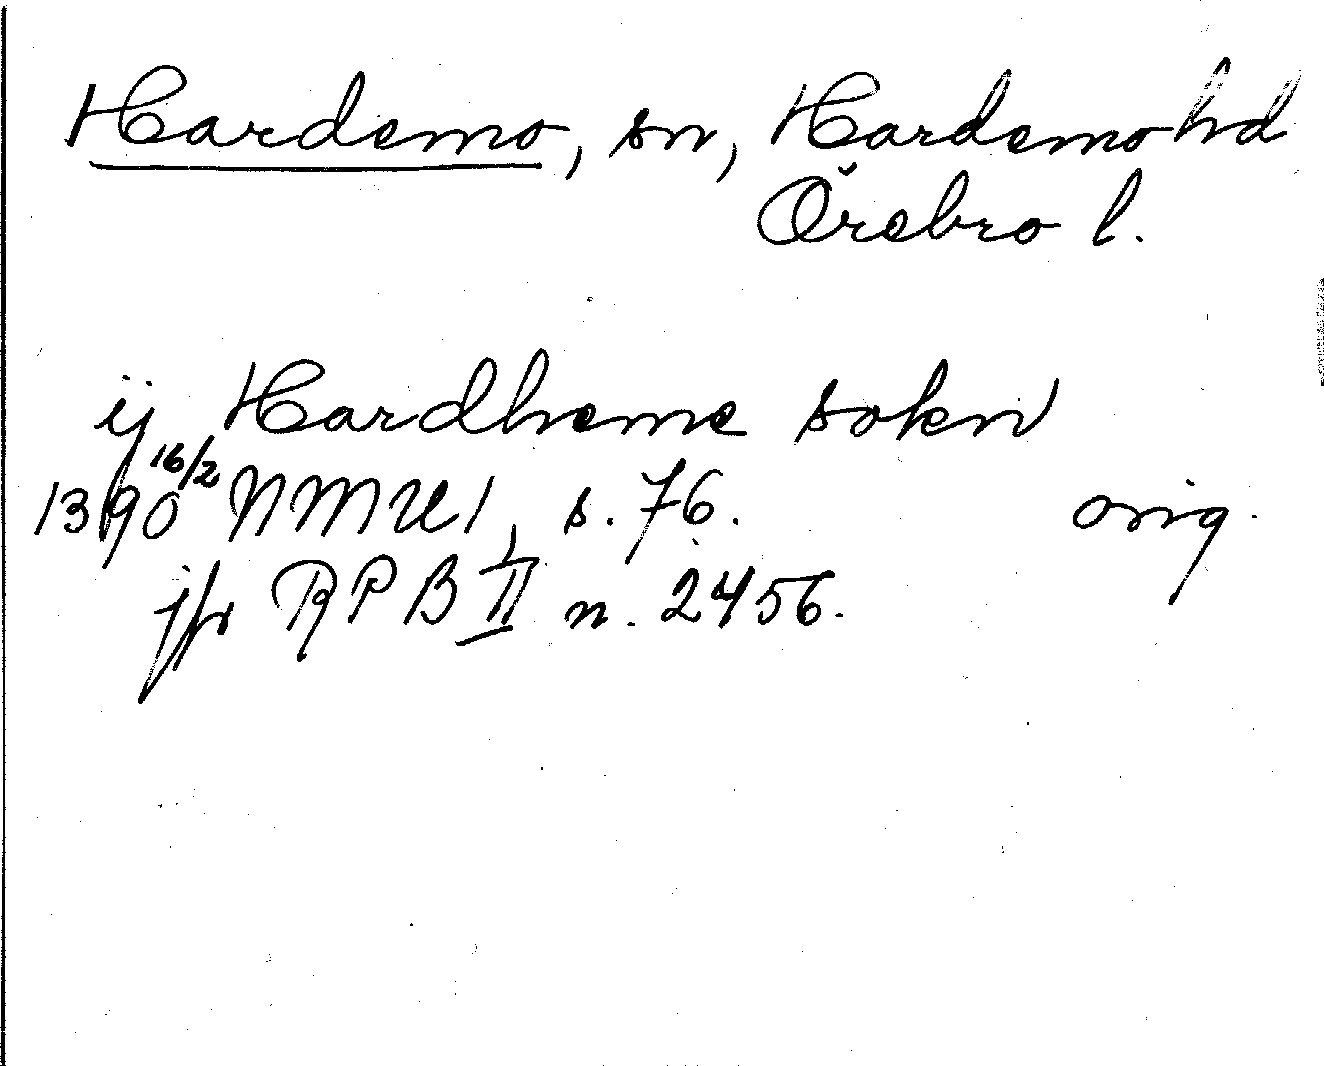 Hardemo, sn, Hardemo hd
Örebro l.
ij Hardheme sokn
1390 16/2 NMU 1, s. 76. orig.
jfr RPB II n. 2456.